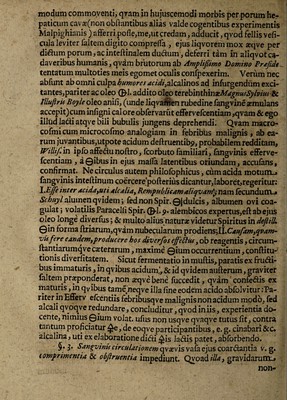 modum commoventi, quam in hujuscemodi morbis per porum he-
paticum cava (non obstantibus alias valde cogentibus experimentis
Malpighianis) asserri posse, me, ut credam, adducit, quod fellis vesi-
cula leviter saltem digito compressa, ejus liqvorem mox æqve per
dictum porum, ac intestinalem ductum, deferri tàm in aliqvot ca-
daveribus humanis, quàm brutorum ab Amplissimo Domino Præside
tentatum multoties meis egomet oculis conspexerim. Verùm nec
absunt ab omni culpa humores acidi, alcalinos ad insurgendùm exci-
tantes, pariter ac oleo addito oleo terebinthinæ Magnus Sylvius &
Illustris Boyle oleo anisi, (unde liqvamen rubedine sangvinè æmulans
accepit) cum insigni calore observarit effervescentiam, quam & ego
illud lacti atqve bili bubulis jungens deprehendi. Quàm macro-
cosmi cum microcosmo analogiam in febribus malignis, ab ea-
rum juvantibus, utpote acidum destruentibo, probabilem redditam,
Willis. in ipso affectu nostro, scorbuto familiari, sangvinis efferve-
scentiam, à ibus in ejus massa latentibus oriundam, accusans,
confirmat. Ne circulus autem philosophicus, cùm acida motum
sangvinis intestinum coërcere posterius dicantur, labore, regeritur:
I. Esse inter acida, uti alcalia, Rempublicam aliqvam; nam secundum
Schuyl alumen qvidem; sed non Spir. dulcis, albumen ovi coa-
gulat; volatilis Paracelsi Spir. alembicos expertus, est ab ejus
oleo longè diversus; & multo alius naturæ videtur Spiritus in desill.
in forma striarum, qvàm nubecularum prodiens, II. Causam, quam-
vis ferè eandem, producere hos diversos effectus, ob reagentis, circum-
stantiarumqve cæterarum, maximè etiam occurrentium, constitu-
tionis diversitatem. Sicut fermentatio in mustis, paratis ex fructi-
bus immaturis, in qvibus acidum, & id qvidem austerum, graviter
saltem præponderat, non æqvè benè succedit, qvàm confectis ex
maturis, in qvibus tamè neqve illa sine eodem acido absolvitur: Pa-
riter in Efferv escentiis febribusqve malignis non acidum modò, sed
alcali qvoqve redundare, concluditur, qvod in iis, experientia do-
cente, nimius volat. usus non usqve qvaqve tutus sit, contra
tantum proficiatur, de eoqve participantibus, e. g. cinabari &c.
alcalina, uti ex elaboratione dicti is lactis patet, absorbendo.
§. 3. Sangvinis circulationem qvævis vasa ejus coarctantia v. g.
comprimentia & obstruentia impediunt. Qvoad illa, gravidarum
non-